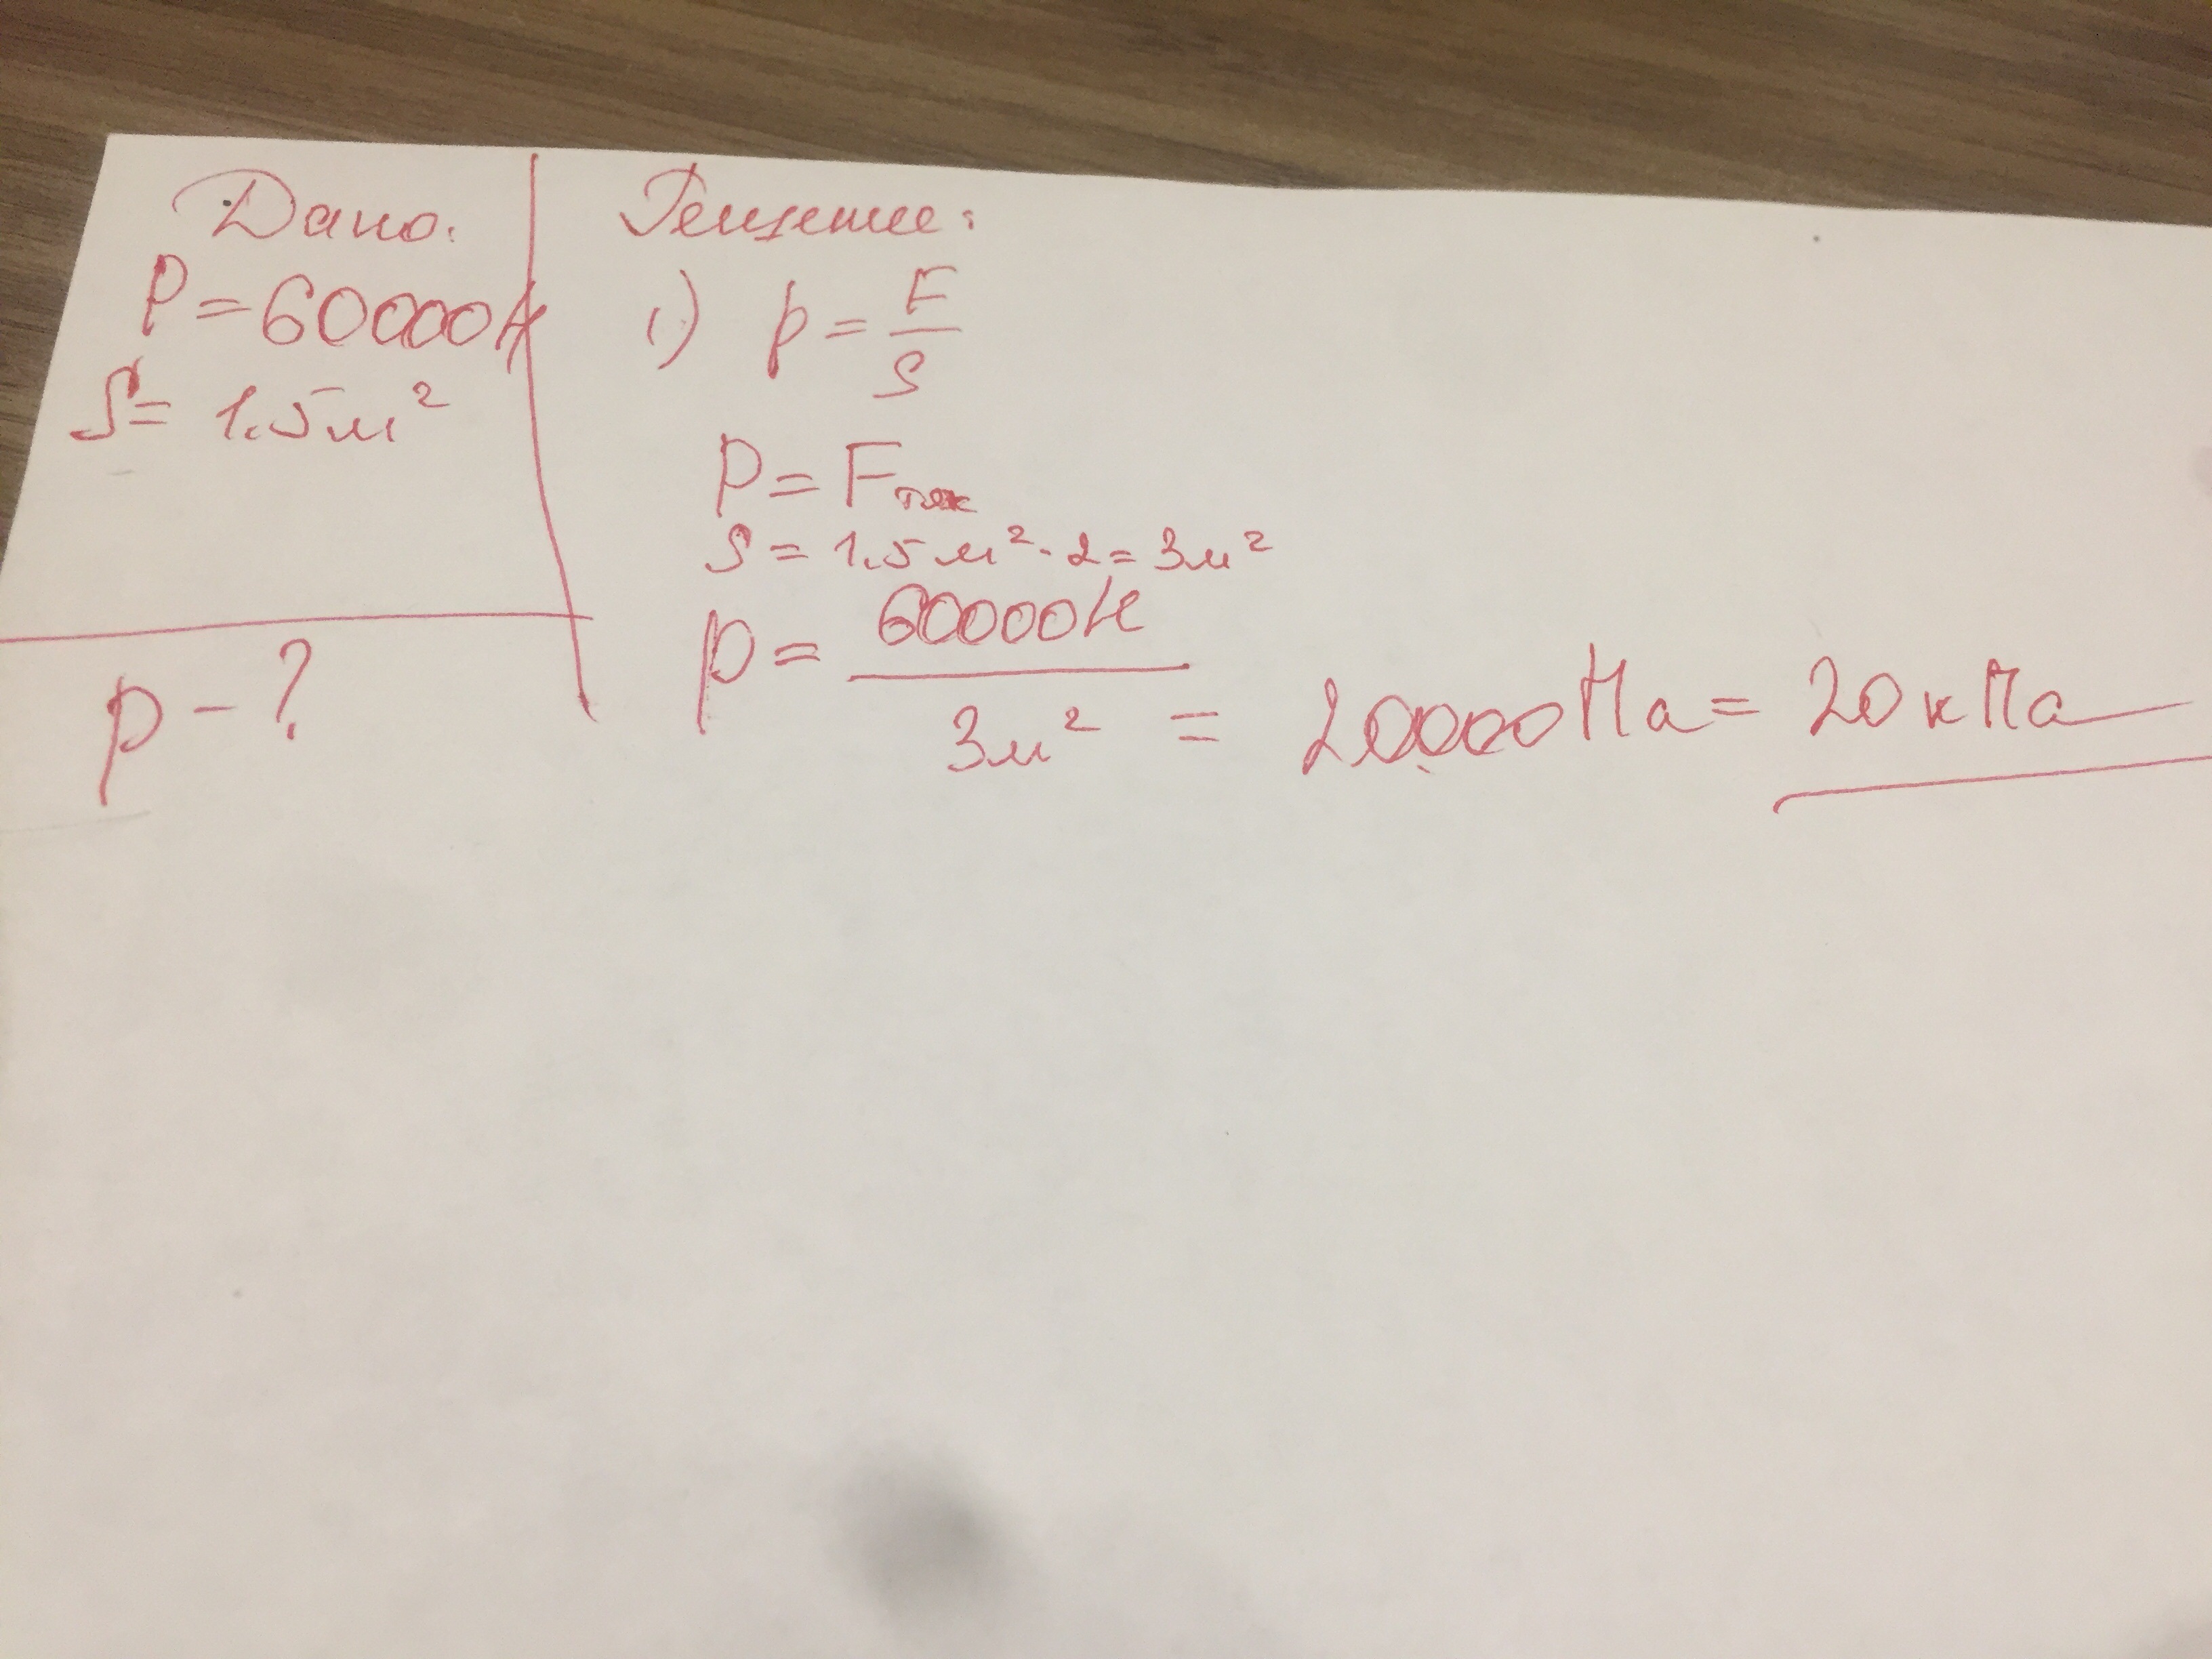 Дано:
P = 60000Н
S = 1.5м²
p - ?
Решение:
1) p = F/S
P = Fтяж
S = 1.5 м² · 2 = 3м²
p = 60000Н/3м² = 20000Па = 20 кПа